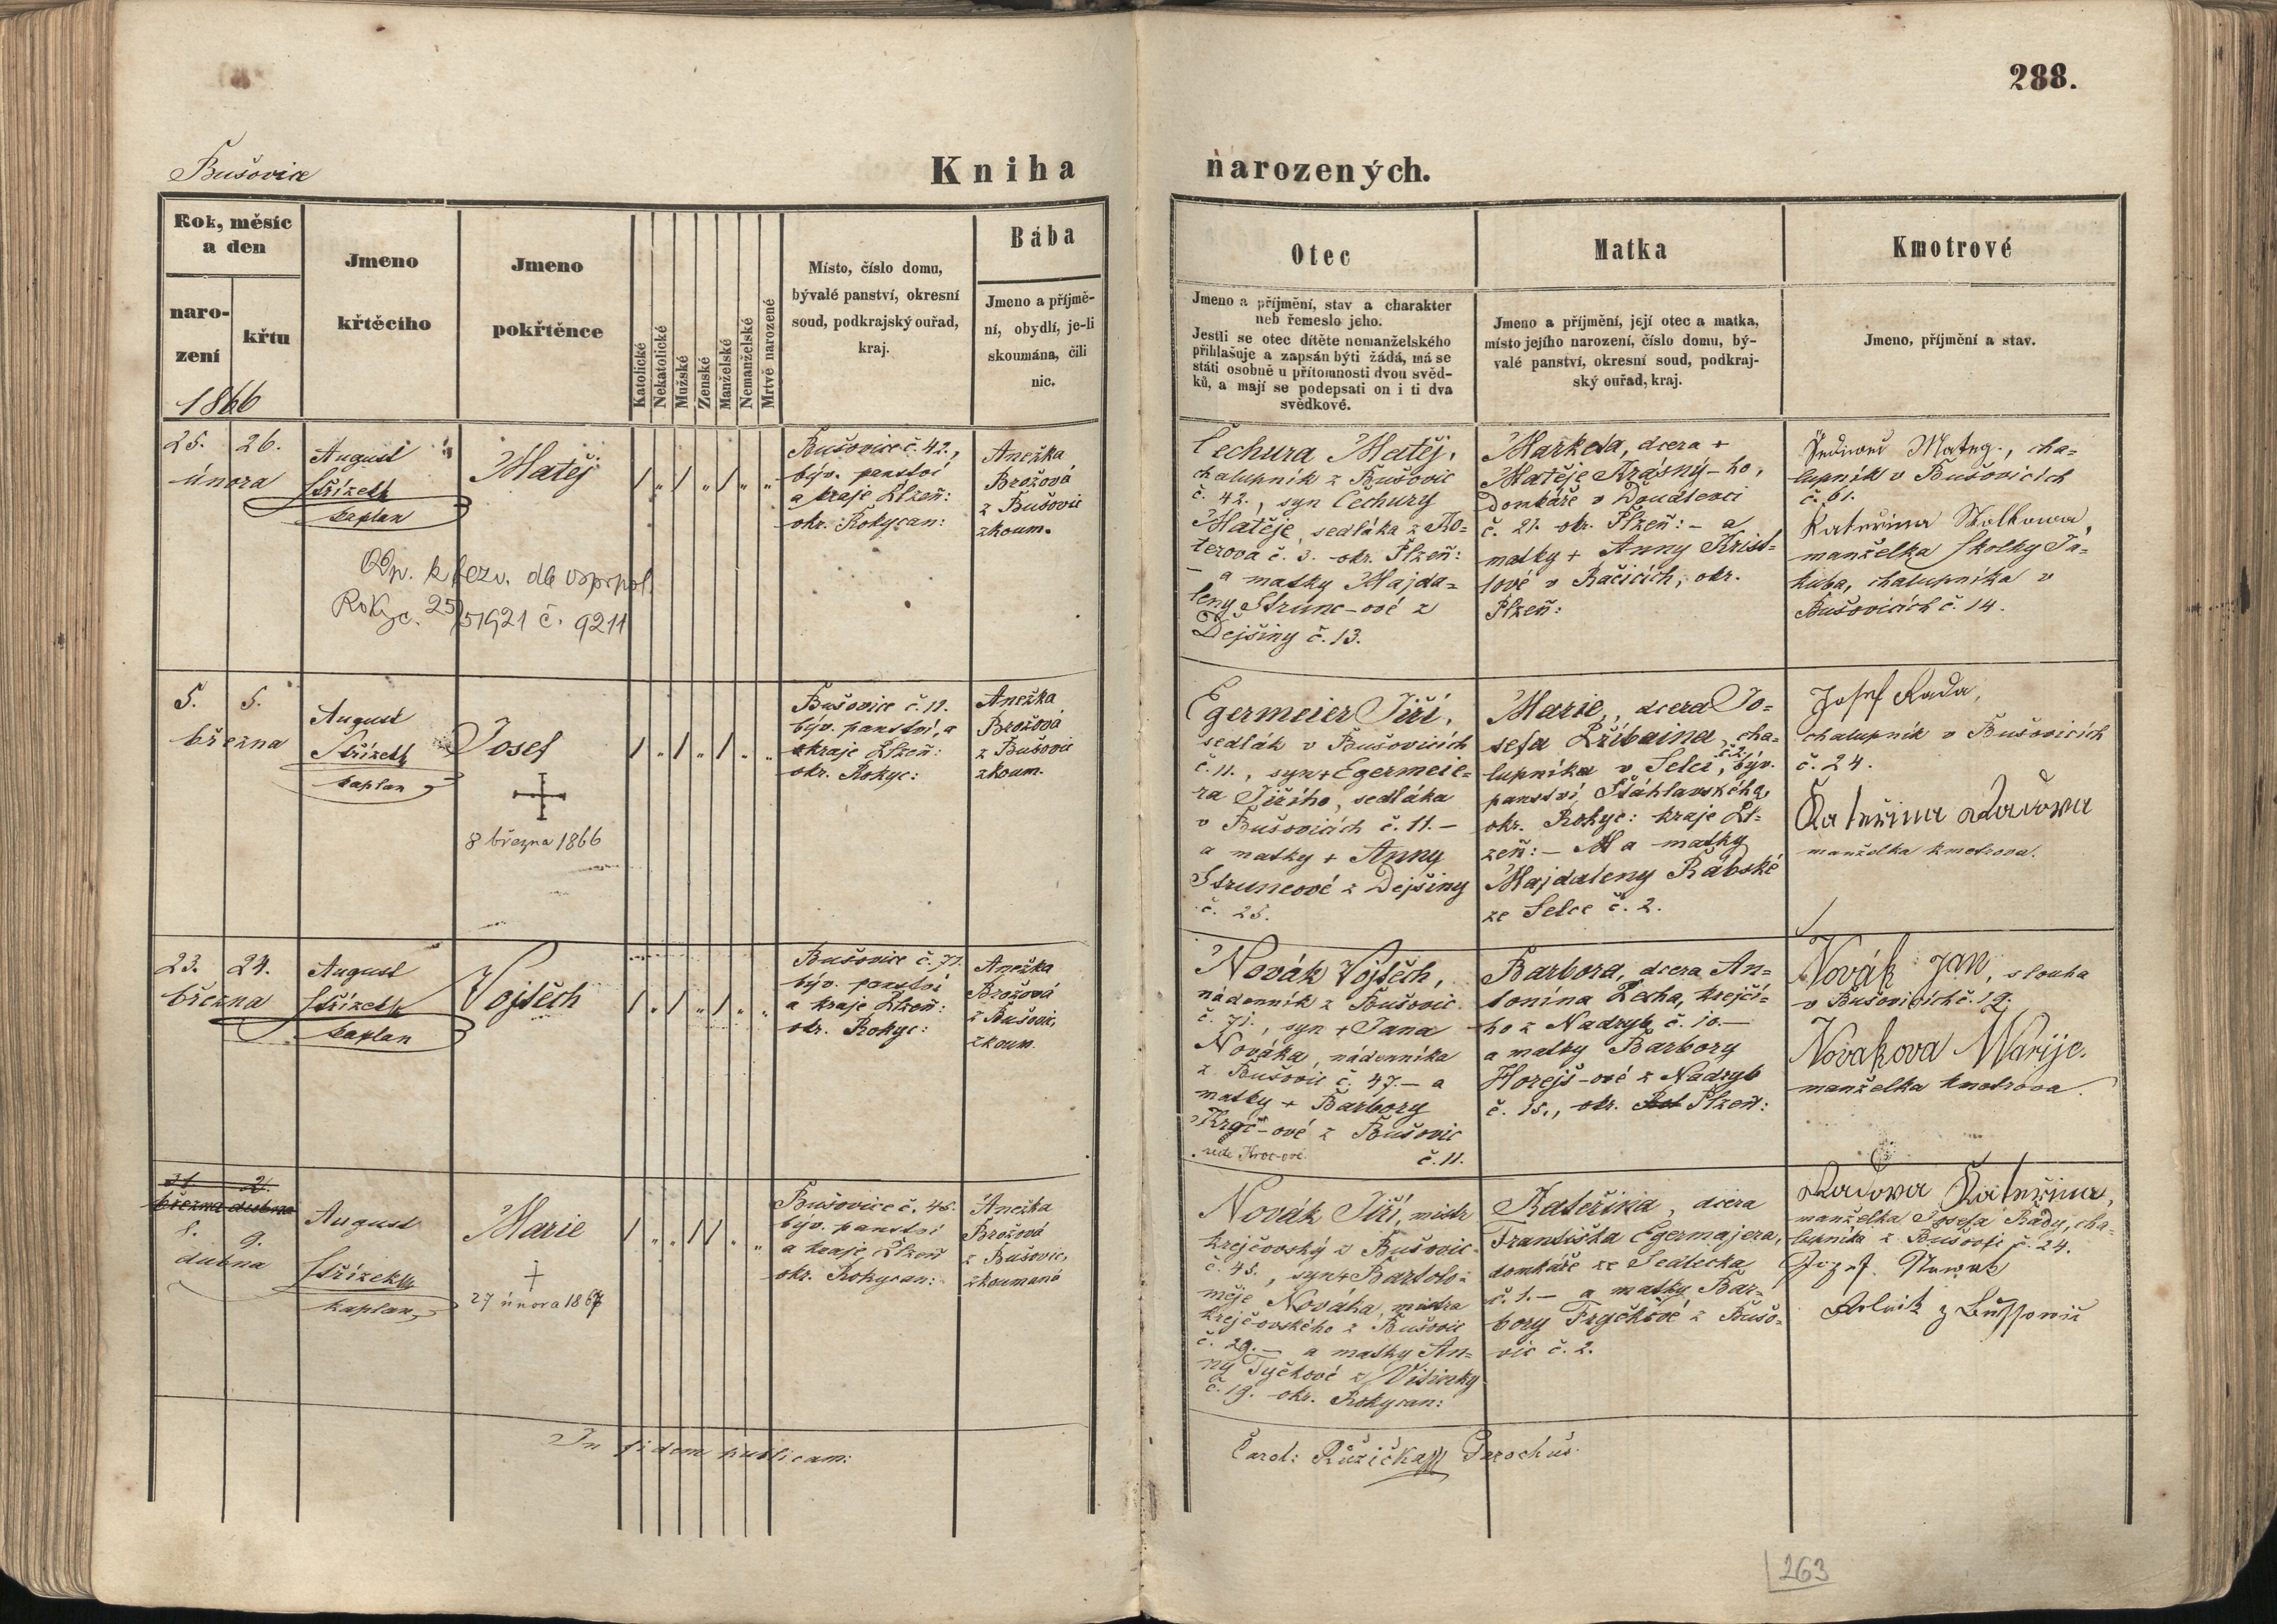 288.
Bušovice
Kniha narozených.
Rok, měsíc
a den
naro-
zení
křtu
1866
Jmeno
křtěcího
Jmeno
pokřtěnce
Katolické
Nekatolické
Mužské
Ženské
Manželské
Nemanželské
Mrtvě narozené
Místo, číslo domu,
bývalé panství, okresní
soud, podkrajský ouřad,
kraj.
Bába
Jmeno a příjmě-
ní, obydlí, je-li
skoumána, čili
nic.
Otec
Jmeno a příjmění, stav a charakter
neb řemeslo jeho.
Jestli se otec dítěte nemanželského
přihlašuje a zapsán býti žádá, má se
státi osobně u přítomnosti dvou svěd-
ků, a mají se podepsati on i ti dva
svědkové.
Matka
Jmeno a příjmění, její otec a matka,
místo jejího narození, číslo domu, bý-
valé panství, okresní soud, podkraj-
ský ouřad, kraj.
Kmotrové
Jmeno, příjmění a stav.
25. 26.
února
August
Střízek
kaplan
Matěj
Bušovice č. 42.,
býv. panství
a kraje Plzeň:
okr. Rokycan:
Anežka
Brožová
z Bušovic
zkoum.
Čechura Matěj,
chalupník z Bušovic
č. 42., syn Čechury
Matěje, sedláka z Ko-
terova č. 3. okr. Plzeň:
– a matky Majda-
leny Strunc-ové z
Dejšiny č. 13.
Marketa, dcera +
Matěje Krásný-ho,
domkáře v Doudlevci
č. 21. okr. Plzeň: – a
matky + Anny Krist-
lové v Račicích, okr.
Plzeň:
Mateg., cha-
lupník v Bušovicích
č. 61.
Kateřina Skolkowa,
manželka Skolky Ja-
kuba, chalupníka v
Bušovicích č. 14.
Odp. k bezv. dle osp. pol.
Rokyc. 25/5 1921 č. 9211
5. 5.
března
August
Střízek
kaplan
Josef
8 března 1866
Bušovice č. 11.
býv. panství, a
kraje Plzeň:
okr. Rokyc:
Anežka
Brožová
z Bušovic
zkoum.
Egermeier Jiří,
sedlák v Bušovicích
č. 11., syn + Egermeie-
ra Jiřího, sedláka
v Bušovicích č. 11. –
a matky + Anny
Struncové z Dejšiny
č. 25.
Marie, dcera Jo-
sefa Křibaina, cha-
lupníka v Selci, č. 2. býv.
panství Šťáhlavského,
okr. Rokyc: kraje Pl-
zeň: – a matky
Majdaleny Rábské
ze Selce č. 2.
Josef Rada,
chalupník v Bušovicích
č. 24.
Kateřina Radowa
manželka kmotrova.
23. 24.
března
August
Střízek
kaplan
Vojtěch
Bušovice č. 71.
býv. panství
a kraje Plzeň:
okr. Rokyc:
Anežka
Brožová
z Bušovic,
zkoum.
Novák Vojtěch,
nádenník z Bušovic
č. 71., syn + Jana
Nováka, nádenníka
z Bušovic č. 47. – a
matky + Barbory
Krgč-ové z Bušovic
č. 11.
Barbora, dcera An-
tonína Zecha, krejčí-
ho z Nadryb č. 10. –
a matky Barbory
Horejš-ové z Nadryb
č. 15., okr. Plzeň:
Novák Jan, slouha
v Bušovicích č. 19.
Novakova Marije.
manželka kmotrova.
31 2.
března dubna
8. 9.
dubna
August
Střízek
kaplan
Marie
27 února 1867
Bušovice č. 45.
býv. panství
a kraje Plzeň
okr. Rokycan:
Anežka
Brožová
z Bušovic,
zkoumaná
Novák Jiří, mistr
krejčovský z Bušovic
č. 45., syn + Bartolo-
měje Nováka, mistra
krejčovského z Bušovic
č. 29. – a matky An-
ny Tyčkové z Vitinky
č. 19. okr. Rokycan:
Kateřina, dcera
Františka Egermajera,
domkáře ze Sedlecka
č. 1. – a matky Bar-
bory Fryčkové z Bušo-
vic č. 2.
Radowa Kateřina,
manželka Josefa Rady, cha-
lupníka z Bušovic č. 24.
Jozef Nowak
In fidem publicam:
Carol: Růžička Parochus.
263